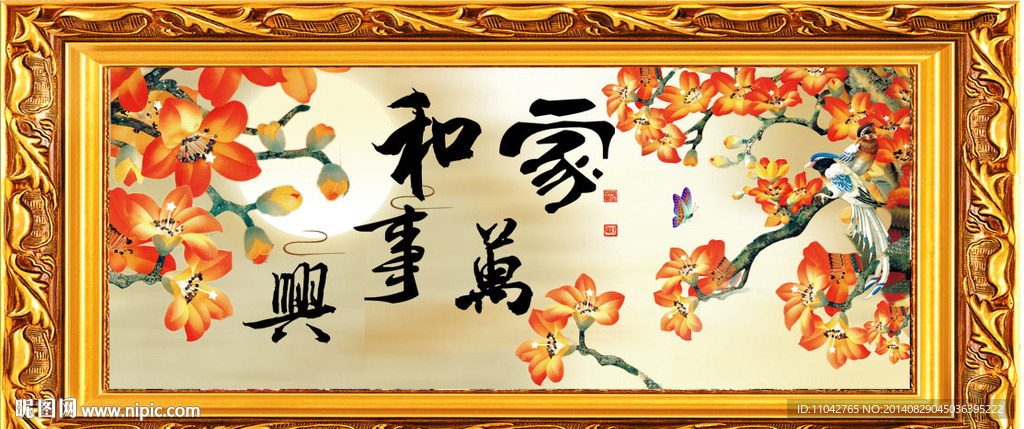 家和萬事興
昵图网 www.nipic.com
ID:11042765 NO:20140829045036395222